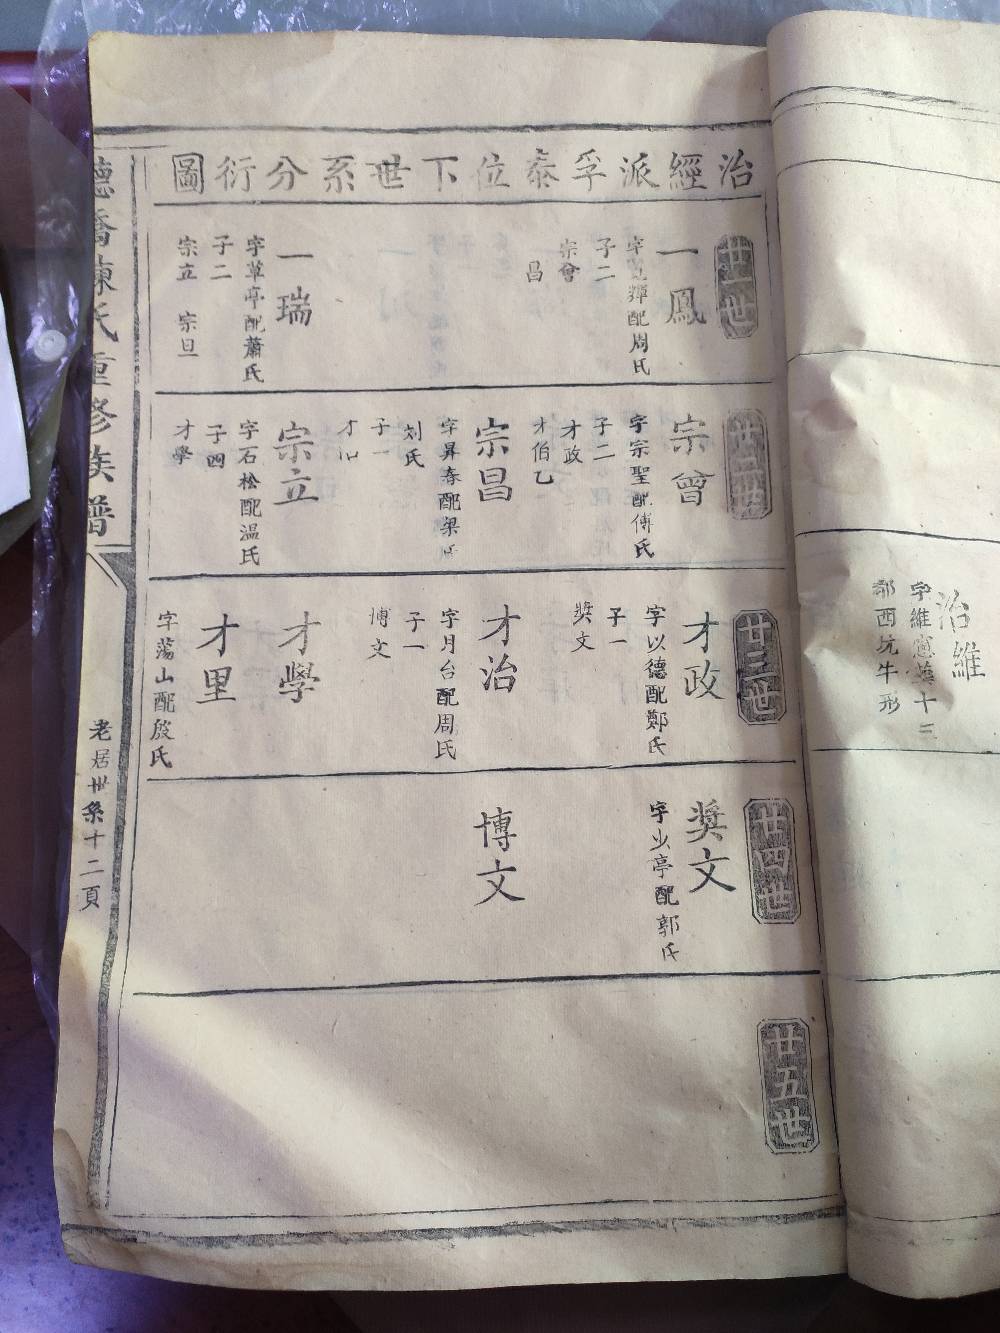 治經派孚泰位下世系分衍圖
廿一世
一鳳
輝配周氏
子二
宗會
昌
一瑞
字草亭配蕭氏
子二
宗立 宗旦
廿二世
宗曾
字宗聖配傅氏
子二
才政
才伯乙
宗昌
字昇春配梁氏
刘氏
子一
才
宗立
字石松配温氏
子四
才學
廿三世
才政
字以德配鄭氏
子一
奬文
才治
字月台配周氏
子一
博文
才學
才里
字蕩山配殷氏
廿四世
奬文
字少亭配郭氏
博文
廿五世
德橋陳氏重修族譜
老居世系十二頁
治維
字維
十三
郡西坑牛形